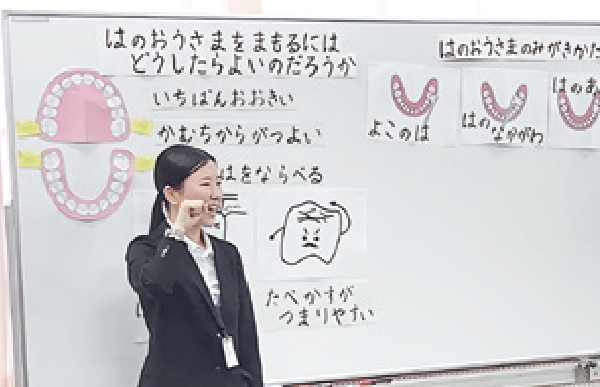 はのおうさまをまもるには
どうしたらよいのだろうか
いちばんおおきい
かむちからがつよい
はをならべる
たべかすが
つまりやすい
はのおうさまのみがきかた
よこのは
はの
なかがわ
はのお